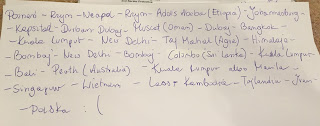 Poznań - Rzym - Neapol - Rzym - Addis Abeba (Etiopia) - Johannesburg -
- Kapsztad - Durban - Dubaj - Muscat (Oman) - Dubaj - Bangkok -
- Kuala Lumpur - New Delhi - Taj Mahal (Agra) - Himalaje -
- Bombaj - New Delhi - Bombaj - Colombo (Sri Lanka) - Kuala Lumpur -
- Bali - Perth (Australia) - Kuala Lumpur albo Manila -
- Singapur - Wietnam - Laos - Kambodża - Tajlandia - Iran -
- Polska :(